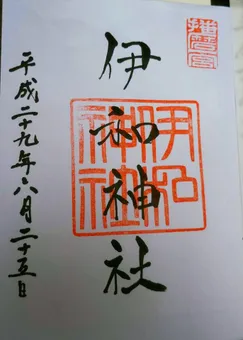 播磨一宮
伊和神社
伊和
神社
平成二十九年八月二十五日